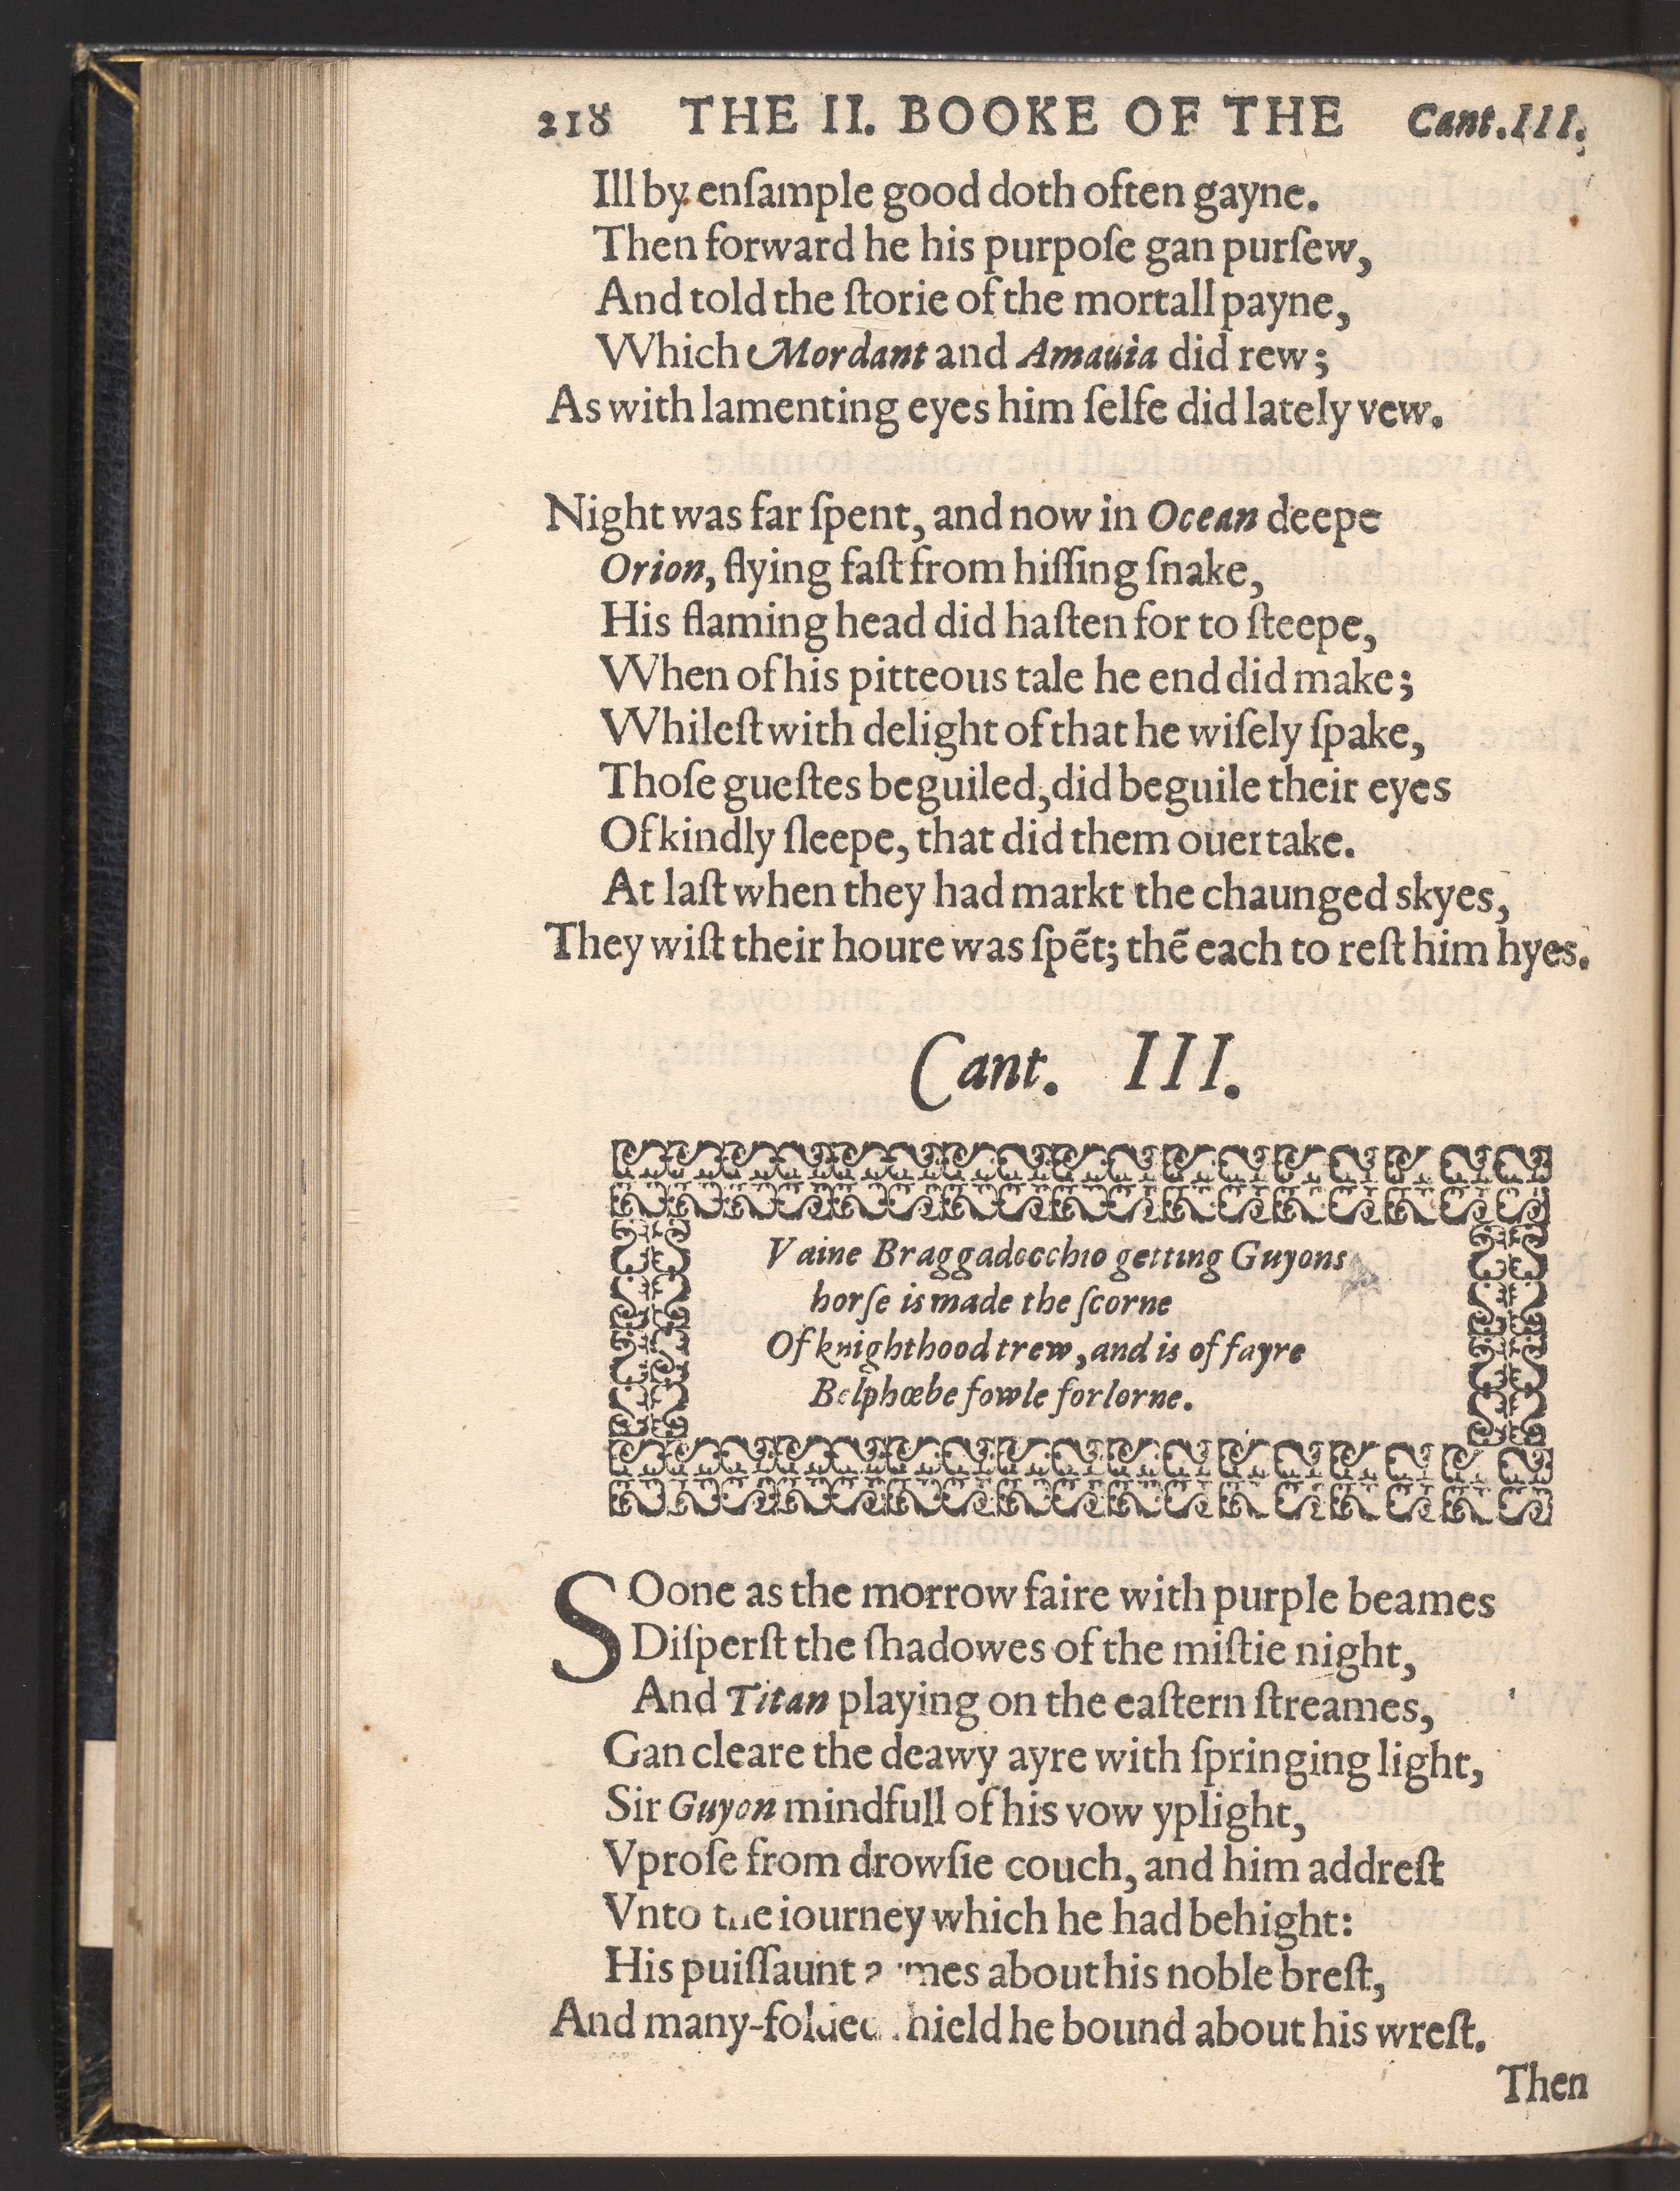 218 THE II. BOOKE OF THE Cant.III.
Ill by enſample good doth often gayne.
Then forward he his purpoſe gan purſew,
And told the ſtorie of the mortall payne,
Which Mordant and Amauia did rew;
As with lamenting eyes him ſelfe did lately vew.
Night was far ſpent, and now in Ocean deepe
Orion, flying faſt from hiſſing ſnake,
His flaming head did haſten for to ſteepe,
When of his pitteous tale he end did make;
Whileſt with delight of that he wiſely ſpake,
Thoſe gueſtes beguiled, did beguile their eyes
Of kindly ſleepe, that did them ouertake.
At laſt when they had markt the chaunged skyes,
They wiſt their houre was ſpēt; thē each to reſt him hyes.
Cant. III.
Vaine Braggadocchio getting Guyons
horſe is made the ſcorne
Of knighthood trew, and is of fayre
Belphœbe fowle forlorne.
SOone as the morrow faire with purple beames
Diſperſt the ſhadowes of the miſtie night,
And Titan playing on the eaſtern ſtreames,
Gan cleare the deawy ayre with ſpringing light,
Sir Guyon mindfull of his vow yplight,
Vproſe from drowſie couch, and him addreſt
Vnto the iourney which he had behight:
His puiſſaunt armes about his noble breſt,
And many-folded ſhield he bound about his wreſt.
Then